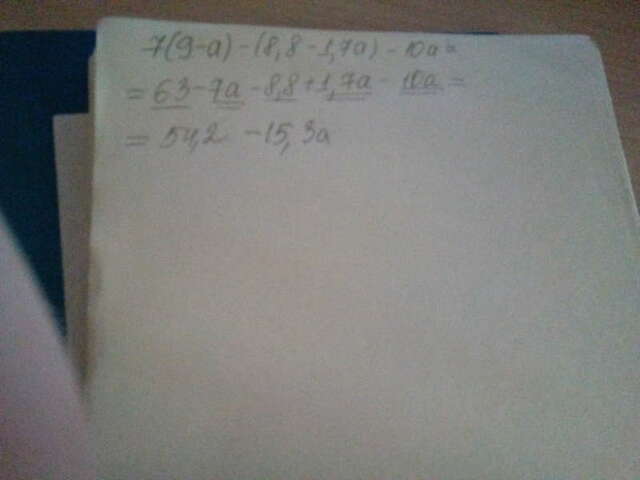 7(9-a)-(8,8-1,7a)-10a=
=63-7a-8,8+1,7a-10a=
=54,2-15,3a